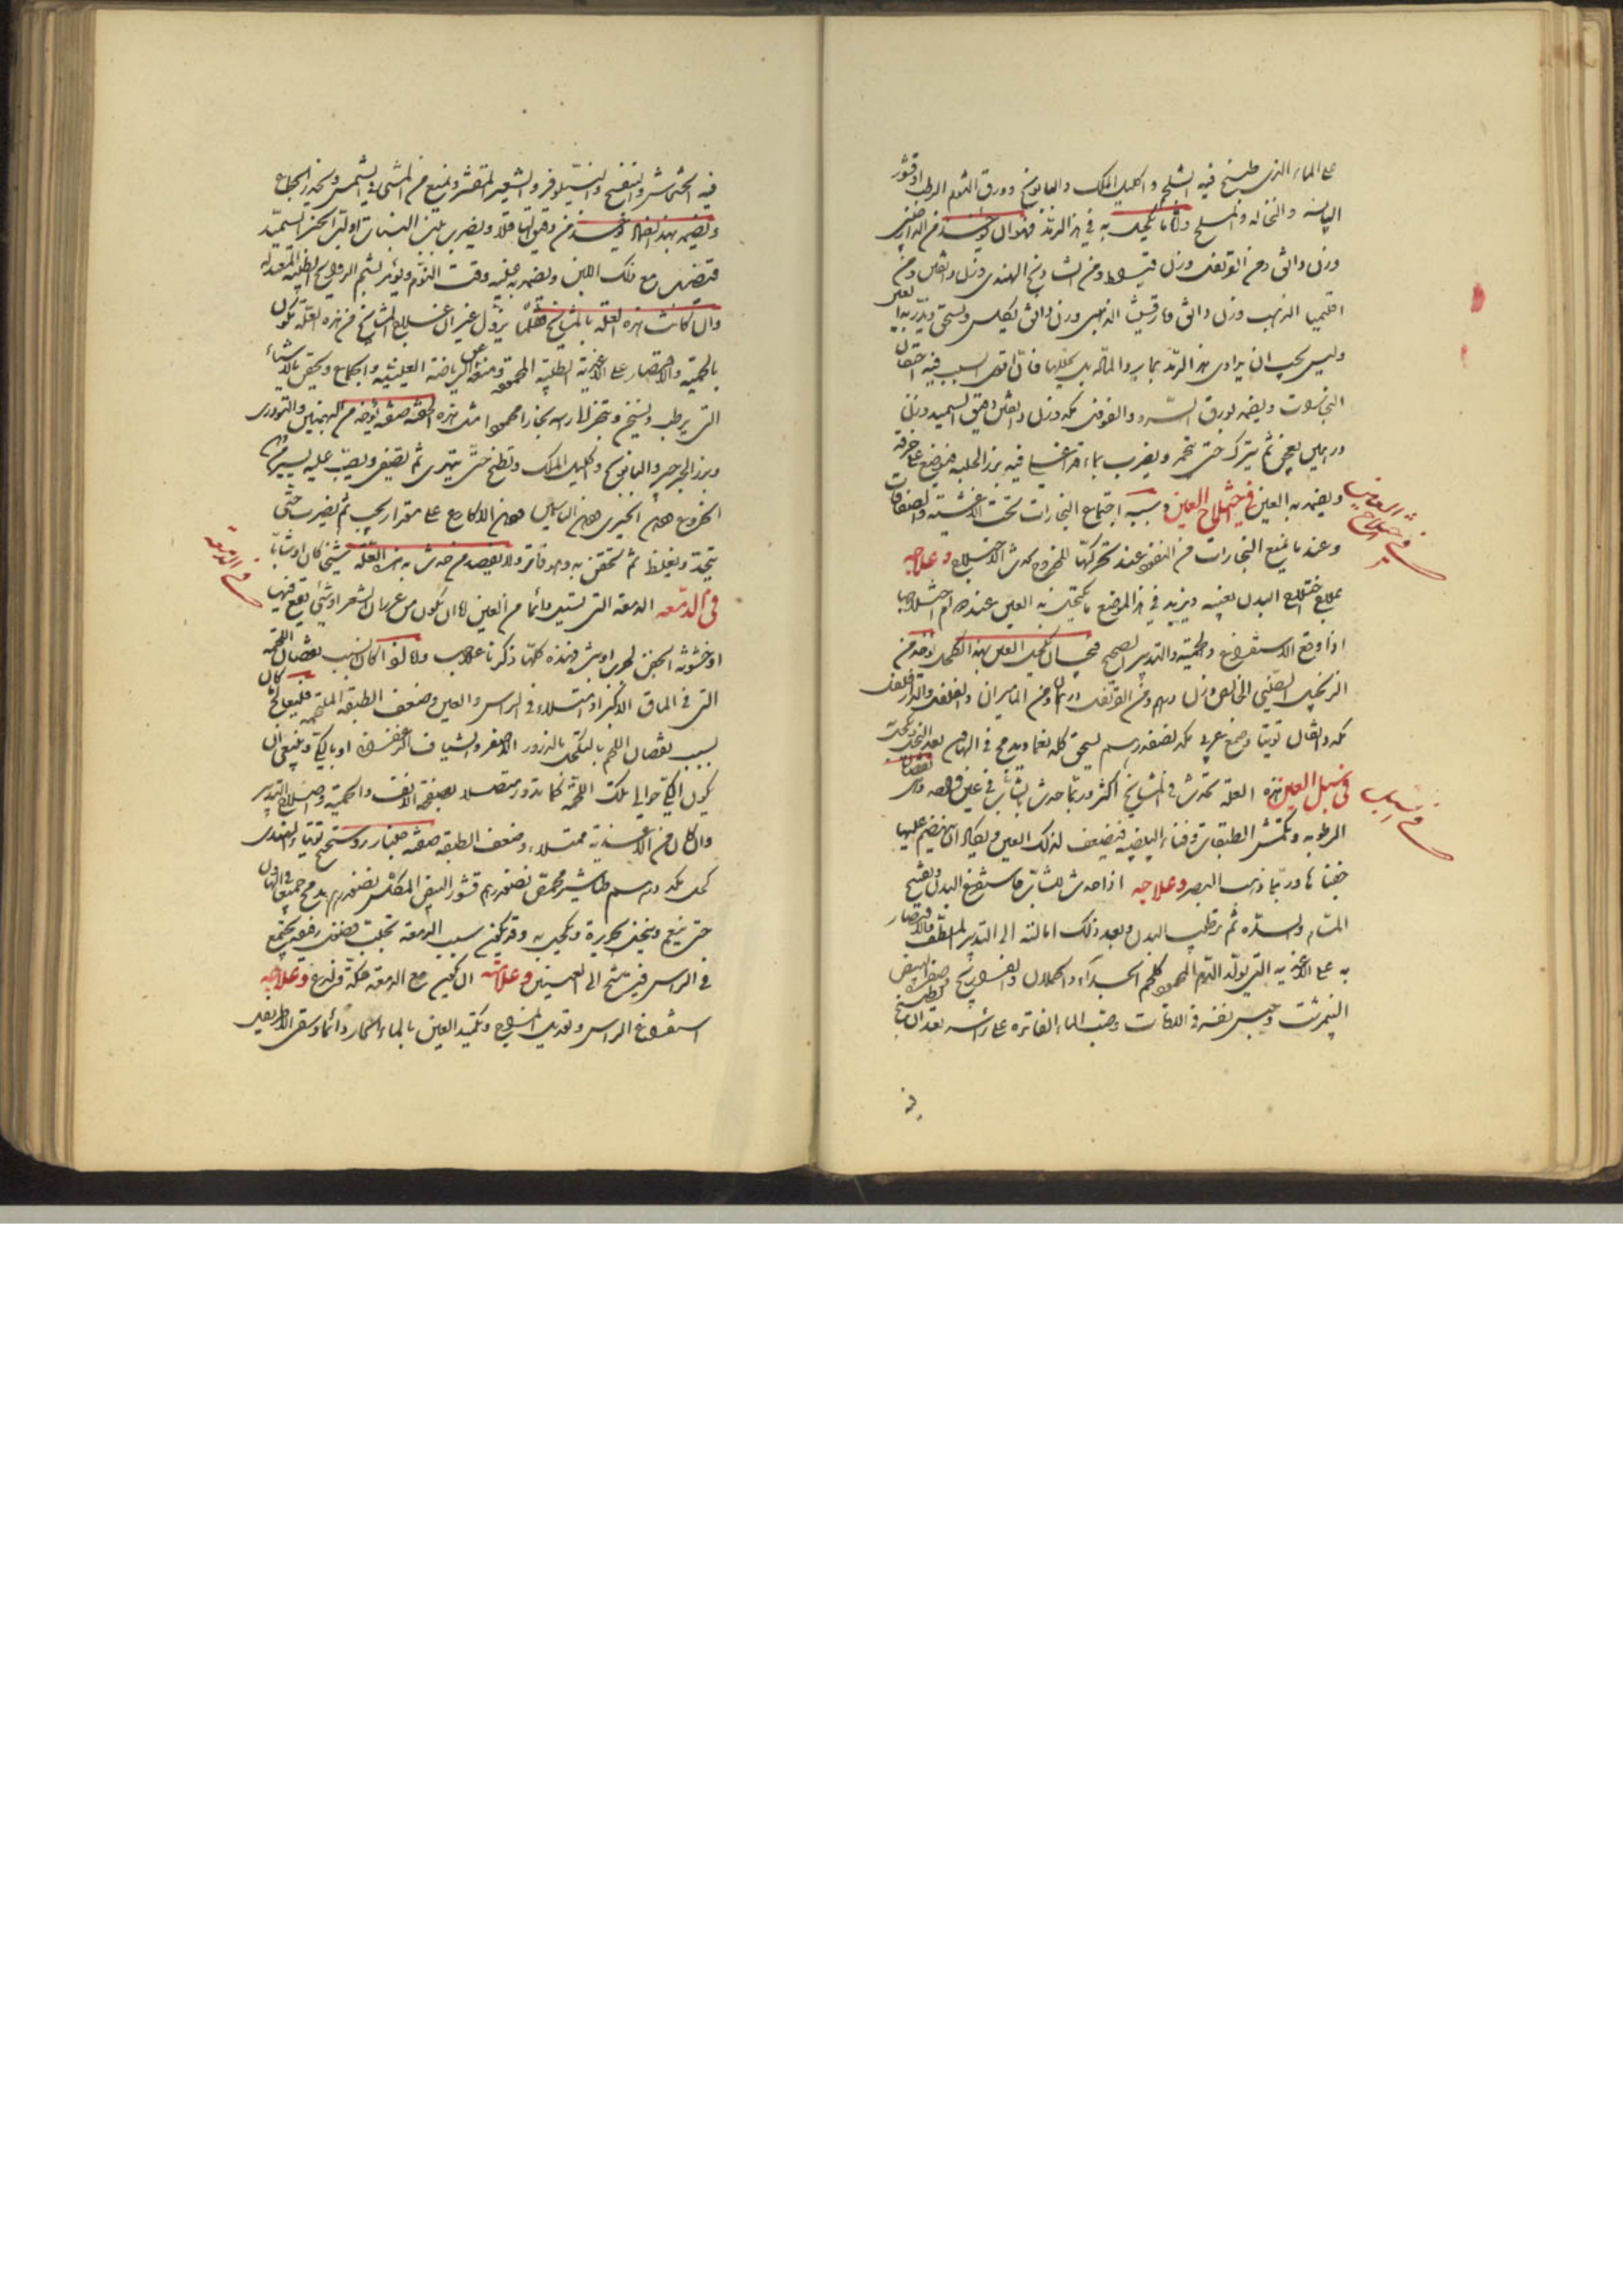 على الماء الذى طبخ فيه الشلجم واكليل الملك والبابونج وورق الثوم الرطب او قشور
اليابسة والنخالة والملح واما ما يكحل به فى هذا الرمد فهو ان يؤخذ من الدار صينى
وزن دانق ومن القرنفل وزن قيراط ومن الشاذنج الهندى وزن دانقين ومن
اقليميا الذهب وزن دانق مارقشيثا الذهبى وزن دانق يكلس ويسحق ويذر به العين
وليس يجب ان يداوى هذا الرمد بما يرد المادة بل يحللها فان اقوى السبب فيه احتقان
البخارات ويضمد بورق السرو والفوفل مكد وزن دانقين دقيق السميد وزن
درهمين يعجن ثم يترك حتى يتخمر ويضرب بماء قد اغلى فيه بزر الحلبة فيوضع على خرقة
ويضمد به العين فى اختلاج العين وسببه اجتماع البخارات تحت الاغشية والصفاقات
وعند ما تمنع البخارات من النفوذ عند تحركها للخروج يحدث الاختلاج وعلاجه
علاج اختلاج البدن بعينه ويزيد فى هذا الموضع ما يكتحل به العين عند دوام اختلاجها
اذا وقع الاستفراغ والحمية والتدبير الصحيح فيجب ان يكحل العين بهذا الكحل يؤخذ من
الزنجبيل الصينى الخالص وزن درهم ومن القرنفل درهمان ومن الماميران والفلفل والدار فلفل
مكد مثقال توتيا وصمغ عربى مكد نصف درهم يسحق كله نعما ويدمج فى الهاون بعد النخل ويكحل
فى سل العين هذه العلة تحدث فى المشايخ اكثر وربما حدث بالشاب فى عين واحدة وهى نقصان
الرطوبة وتكمش الطبقات وفناء البيضية فيضعف لذلك العين ويكاد ان ينضم عليها
جفناها وربما ذهب البصر وعلاجه اذا حدث للشاب فاستفرغ البدن وتفتيح
المسام والسدد ثم ترطيب البدن وبعد ذلك امالته الى التدبير الملطف والاقتصار
به على الاغذية التى تولد الدم المحمود كلحم الجداء والحملان والفراريج وصفرة البيض
النيمرشت وحبس نفسه فى الاوقات وصب الماء الفاترة على رأسه بعد ان طبخ
فيه
فى اختلاج العين
فى السل
فيه الخشخاش والبنفسج والنيلوفر والشعير المقشر ويمنع من المشى فى الشمس ويحذر الجماع
ويضمد بهذا الضماد ويؤخذ من دقيق الباقلاء ويضرب بلبن النساء او لبن الخبز السميد
فيضمد مع ذلك اللبن ويضمد به عينيه وقت النوم ويؤمر بشم الروايح الطيبة المعتدلة
وان كانت هذه العلة بالمشايخ فقلما يزول غير ان علاج المشايخ من هذه العلة تكون
بالحمية والاقتصار على الاغذية الطيبة المحمودة ومنعه عن الرياضة العنيفة والجماع ويحقن بالاشياء
التى يرطب ويسخن ويبخر الى رأسه بخارا محمودا مثل هذه الحقنة صفته يؤخذ من البهمنين والتودرى
وبزر الجرجير والبابونج واكليل الملك ويطبخ حتى يتهرى ثم يصفى ويصب عليه يسير من دهن
الخروع ودهن الخيرى ودهن الياسمين ودهن الاكارع على مقدار يجب ثم يضرب حتى
يتحد ويغلظ ثم يحتقن به وهو فاتر ولا يفصد من حدث به هذه العلة شيخا كان او شابا
فى الدمعة الدمعة التى تسيل دائما من العين اما ان تكون من غرزان الشعر او شئ يقع فيها
او خشونة الجفن لجرب او بثر فهذه كلها ذكرنا علاجه واما اذا كان بسبب نقصان اللحمة
التى فى الماق الاكبر او امتلاء فى الرأس والعين وضعف الطبقة الملتحمة فليعالج ما كان
بسبب نقصان اللحم بالتكحل بالذرور الاصفر والشياف الزعفران او بالكى وينبغى ان
يكون الكى حوالى تلك اللحمة كما يدور متصلا بصفحة الانف والحمية واصلاح التدبير
وان كان من الاغذية ممتلاء وضعف الطبقة صفته جلنار روسختج توتيا والهندى
كحل مكد درهم طباشير محمص نصف درهم قشور البيض المكلس نصف درهم يدمج جميعا فى الهاون
حتى ينعم وينخل بحريرة ويكحل به وقد تكون سبب الدمعة تحلب فضول رقيقة يجتمع
فى الرأس فيترشح الى العينين وعلامته ان يكون مع الدمعة حكة ولذع وعلاجه
استفراغ الرأس وتعديل المزاج وتكميد العين بالماء الحار دائما وسقى الاطريفل
فى الدمعة